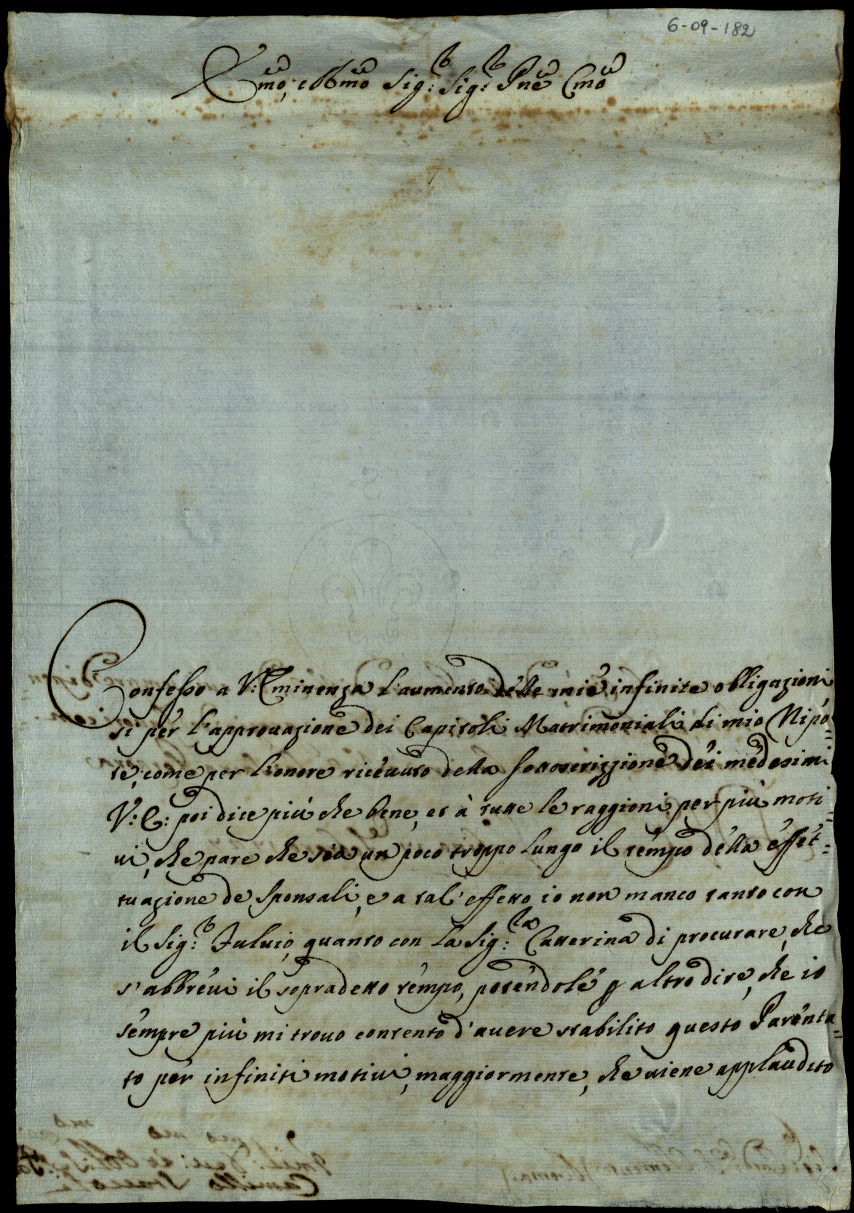 6-09-182
Emo, e Rmo Sig.r Sig.r Pne Cmo
Confesso a V: Eminenza l'aumento delle mie infinite obligazioni
si per l'approuazione dei Capitoli Matrimoniali di mio Nipo=
te, come per l'onore riceuuto della sottoscrizzione dei medesimi
V: E: poi dice più che bene, et à tutte le raggioni per più moti=
ui, che pare che sia un poco troppo lungo il tempo della effet=
tuazione de Sponsali, e a tal'effetto io non manco tanto con
il Sig.r Fuluio, quanto con la Sig.ra Catterina di procurare, che
s'abbreui il sopradetto tempo, potendole p altro dire, che io
sempre più mi trouo contento d'auere stabilito questo Parenta=
to per infiniti motiui, maggiormente, che uiene applaudito